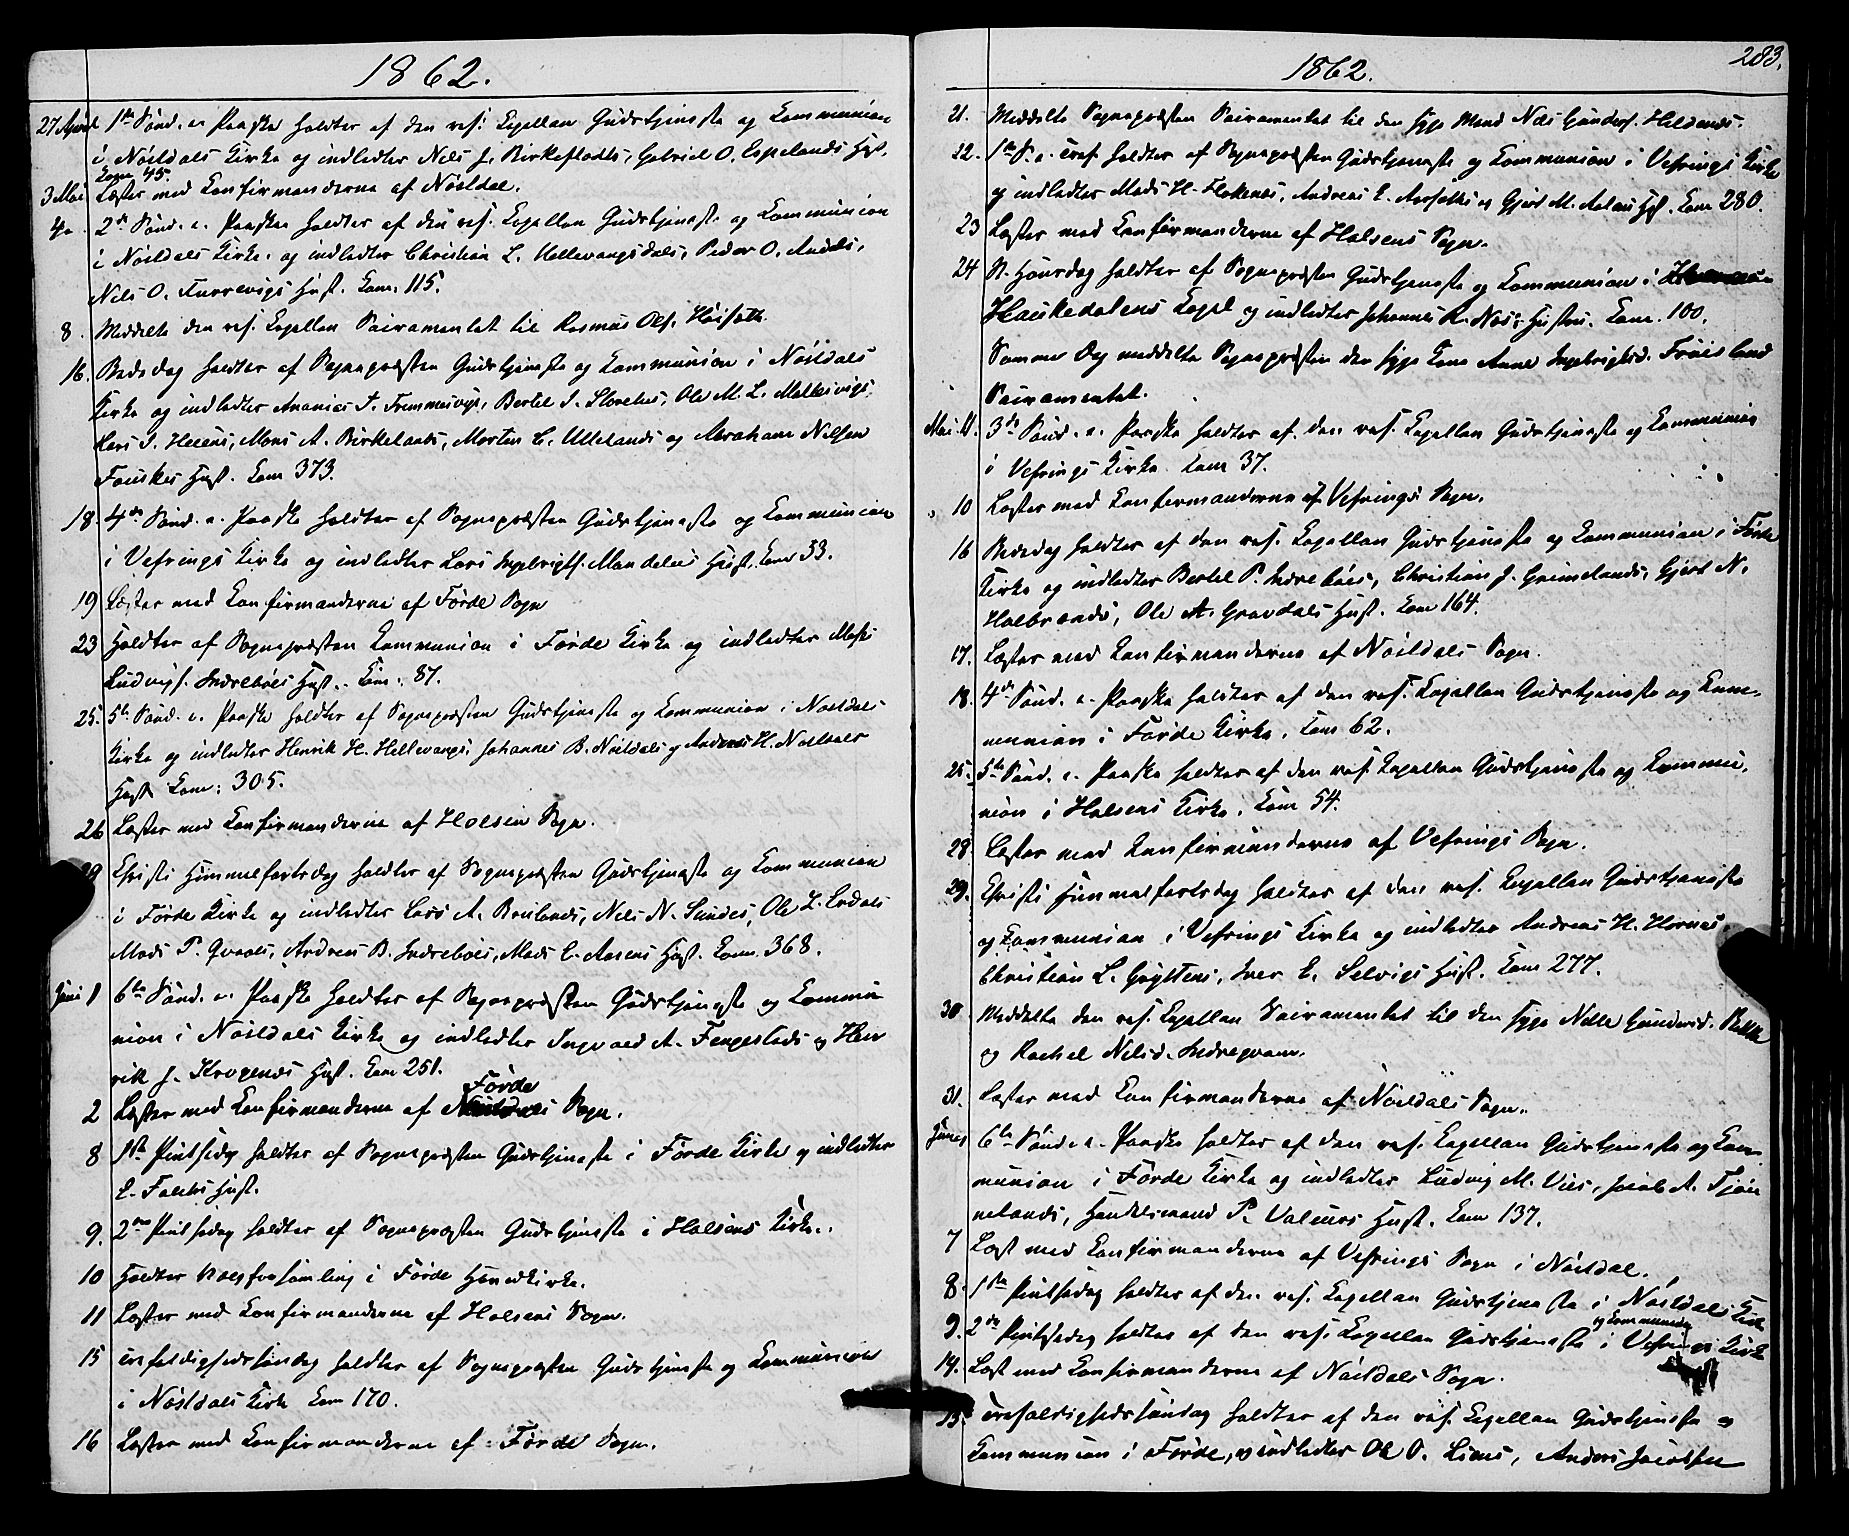 1862.
27 April 1ste Sönd. e. Paaske holdtes af den res. Capellan Gudstjeneste og Communion
i Nöstdals Kirke og indledtes Nels J. Birkeflodts, Gabriel O. Espelands Hust.
Com 45.
3 Mai Læstes med Confirmanderne af Nöstdal.
4 2den Sönd. e. Paaske holdtes af den res. Capellan Gudstjeneste og Communion
i Nöstdals Kirke og indledtes Christian L. Hellevangsdals, Peder O. Andals,
Nils O. Furrevigs Hust. Com: 115.
8. Meddelte den res. Capellan Sacramentet til Rasmus Ols.
16. Bededag holdtes af Sognepræsten Gudstjeneste og Communion i Nöstdals
Kirke og indledtes Ananias S. Frammesvigs, Bertel I. Slovehes, Ole M. L.
Lars I. Helens, Mons A. Birkelands, Morten C. Ullelands og Abraham Nelsen
Fouskes Hust. Com 373.
18. 4de Sönd. e. Paaske holdtes af Sognepræsten Gudstjeneste og Communion
i Vefrings Kirke og indledtes Lars Ingebrigts. Hust. Com 33.
19 Læstes med Confirmanderne af Förde Sogn
23 Holdtes af Sognepræsten Communion i Förde Kirke og indledtes
Ludvigs. Indreböes Hust. Com: 87.
25. 5te Sönd. e. Paaske holdtes af Sognepræsten Gudstjeneste og Communion i Nöstdals
Kirke og indledtes Henrik H. Hellevangs, Johannes B. Nöstdals og Andreas H. Nöstdals
Hust Com: 305.
26 Læstes med Confirmanderne af Holsen Sogn.
29 Christi Himmelfartsdag holdtes af Sognepræsten Gudstjeneste og Communion
i Förde Kirke og indledtes Lars A. Brulands, Nels N. Sundes, Ole L. Erdals
Mads P. Qvaals, Andreas B. Indreböes, Mads C. Aasens Hust. Com. 368.
Juni 1 6te Sönd. e. Paaske holdtes af Sognepræsten Gudstjeneste og Commu
nion i Nöstdals Kirke og indledtes Ingvald A. Fengestads og Hen
rik J. Krogenæs Hust. Com 251.
Förde
2 Læstes med Confirmanderne af Sogn.
8 1ste Pintsedag holdtes af Sognepræsten Gudstjeneste i Förde Kirke og indledtes
Hust.
9. 2den Pintsedag holdtes af Sognepræsten Gudstjeneste i Holsens Kirke.
10 Holdtes Valgforsamling i Förde Hovedkirke.
11 Læstes med Confirmanderne af Holsens Sogn.
15 Trefoldighedssöndag holdtes af Sognepræsten Gudstjeneste og Communion
i Nöstdals Kirke Com 170.
16 Læstes med Confirmanderne af Förde Sogn.
1862.
283.
21. Meddelte Sognepræsten Sacramentet til den syge Mand Nels
22. 1ste S. e. Tref. holdtes af Sognepræsten Gudstjeneste og Communion i Vefrings Kirke
og indledtes Mads H. Flokenes, Andreas E. og Gjert M. Hust. Com 280.
23 Læstes med Confirmanderne af Holsens Sogn.
24 St. Hansdag holdtes af Sognepræsten Gudstjeneste og Communion i
Haukedalens Capel og indledtes Johannes R. Næs's Hustru. Com. 100.
Samme Dag meddelte Sognepræsten den syge Kone Anne Ingebrigtsd. Fröisland
Sacramentet.
Mai 11. 3die Sönd. e. Paaske holdtes af den res. Capellan Gudstjeneste og Communion
i Vefrings Kirke. Com 37.
10 Læstes med Confirmanderne af Vefrings Sogn.
16 Bededag holdtes af den res. Capellan Gudstjeneste og Communion i Förde
Kirke og indledtes Bertel P. Indreböes, Christian J. Grimelands, Gjert N.
Halbrends, Ole A. Gravdals Hust. Com 164.
17. Læstes med Confirmanderne af Nöstdals Sogn.
18. 4de Sönd. e. Paaske holdtes af den res. Capellan Gudstjeneste og Com-
munion i Förde Kirke. Com 62.
25. 5te Sönd. e. Paaske holdtes af den res. Capellan Gudstjeneste og Commu-
nion i Holsens Kirke. Com 54.
28 Læstes med Confirmanderne af Vefrings Sogn.
29. Christi Himmelfartsdag holdtes af den res. Capellan Gudstjeneste
og Communion i Vefrings Kirke og indledtes Andreas H. Hornes,
Christian L. Iver E. Selvigs Hust. Com 277.
30 Meddelte den res. Capellan Sacramentet til den syge Nille Gundersd.
og Rachel Nilsd. Indregvam.
31. Læstes med Confirmanderne af Nöstdals Sogn.
Juni 1 6te Sönd. e. Paaske holdtes af den res. Capellan Gudstjeneste og Com-
munion i Förde Kirke og indledtes Ludvig M. Vies, Jacob A. Tjön
nelands, Handelsmand P. Valeurs Hust. Com 137.
7 Læst med Confirmanderne af Vefrings Sogn i Nöstdal.
8. 1ste Pintsedag holdtes af den res. Capellan Gudstjeneste i Nöstdals Kirk
og Communion
9. 2den Pintsedag holdtes af den res. Capellan Gudstjeneste i Vefrings Kirke
14. Læst med Confirmanderne af Nöstdals Sogn.
15. Trefoldighedssöndag holdtes af den res. Capellan Gudstjeneste og
Communion i Förde, og indledtes Ole O. Liens, Anders Jacobsen